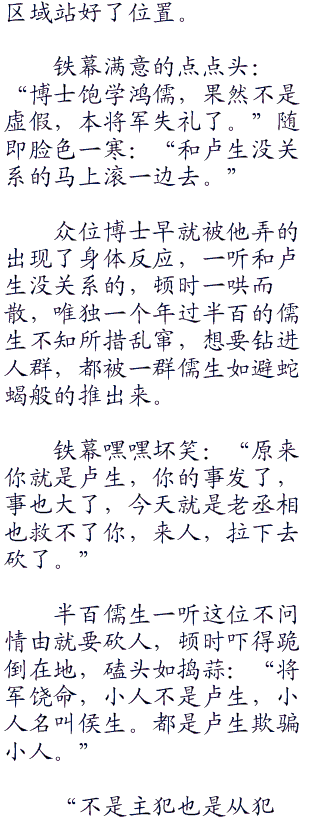 区域站好了位置。
铁幕满意的点点头：
“博士饱学鸿儒，果然不是
虚假，本将军失礼了。”随
即脸色一寒：“和卢生没关
系的马上滚一边去。”
众位博士早就被他弄的
出现了身体反应，一听和卢
生没关系的，顿时一哄而
散，唯独一个年过半百的儒
生不知所措乱窜，想要钻进
人群，都被一群儒生如避蛇
蝎般的推出来。
铁幕嘿嘿坏笑：“原来
你就是卢生，你的事发了，
事也大了，今天就是老丞相
也救不了你，来人，拉下去
砍了。”
半百儒生一听这位不问
情由就要砍人，顿时吓得跪
倒在地，磕头如捣蒜：“将
军饶命，小人不是卢生，小
人名叫侯生。都是卢生欺骗
小人。”
“不是主犯也是从犯